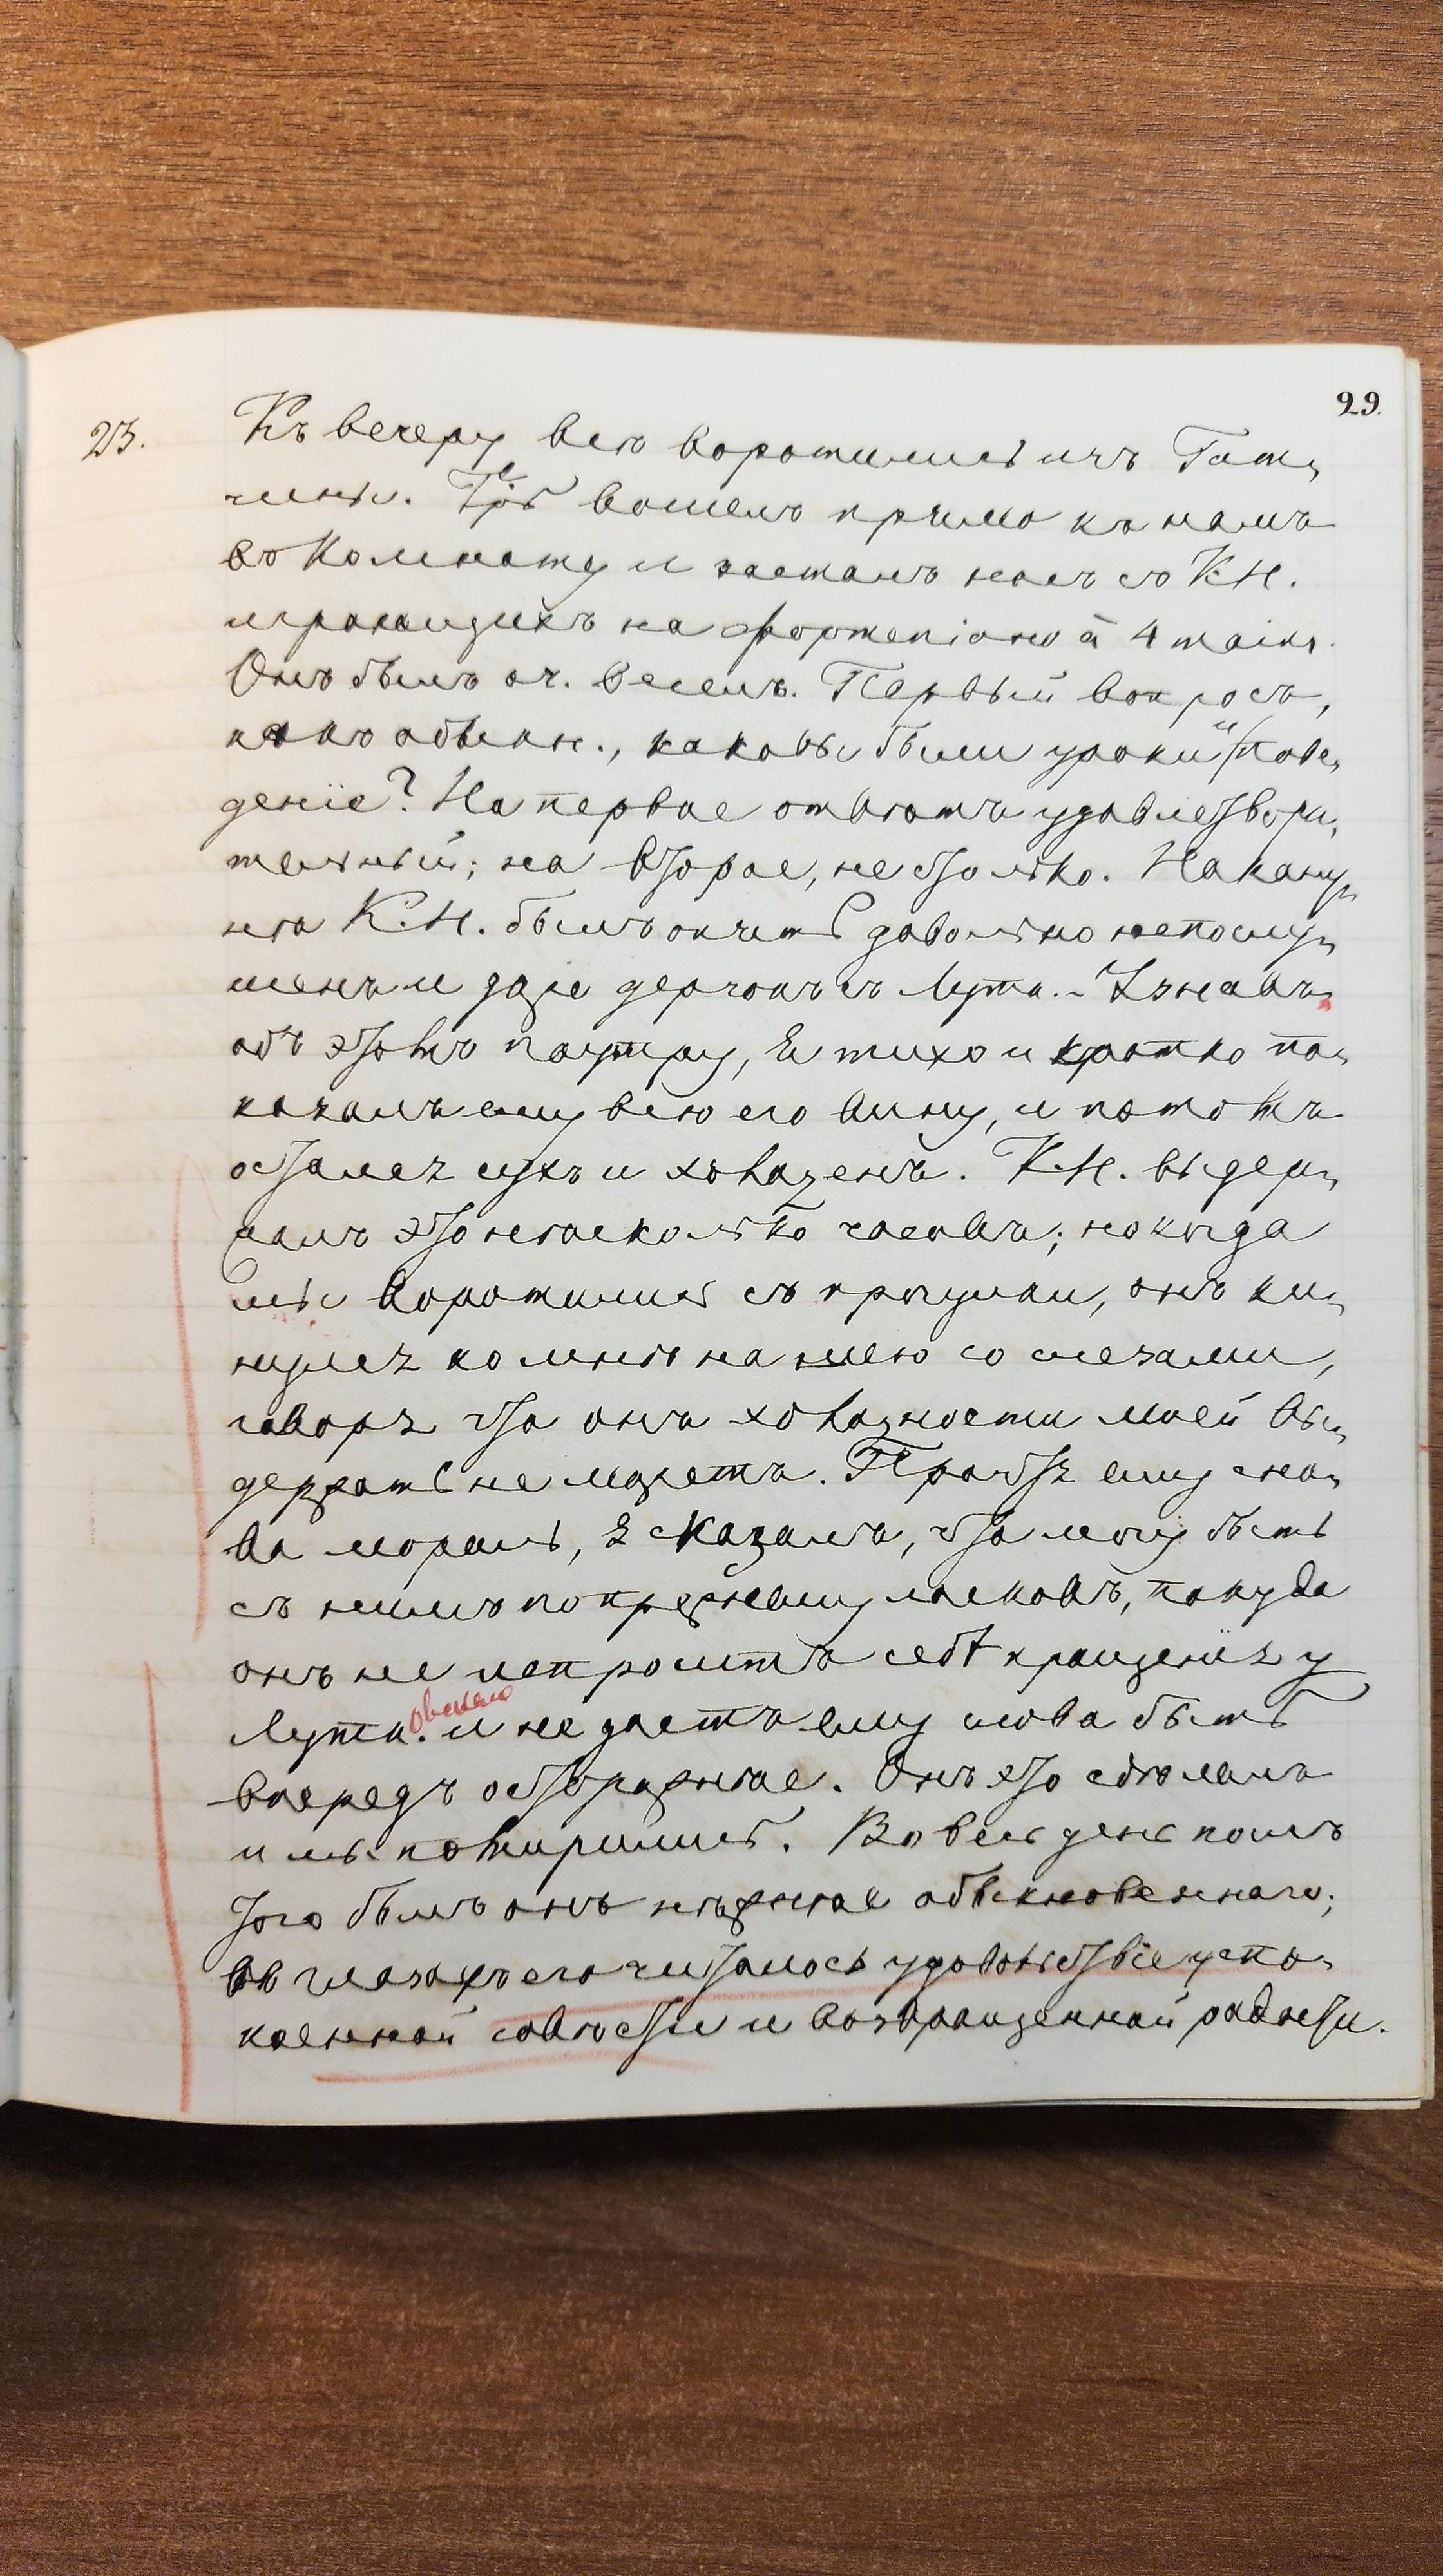 29.
23. Къ вечеру всѣ воротились изъ Гат-
чины. Гдь вошелъ прямо къ намъ
въ комнату и засталъ насъ съ К.Н.
играющихъ на фортепіано à 4 mains.
Онъ былъ оч. веселъ. Первый вопросъ,
какъ обыкн., каковы были уроки и пове-
деніе? На первое отвѣтъ удовлетвори-
тельный; на второе, не столько. Накану-
нѣ К.Н. былъ опять довольно непослу-
шенъ и даже дерзокъ съ Лутк. – Узнавъ
объ этомъ поутру, я тихо и кротко по-
казалъ ему всю его вину, и потомъ
остался сухъ и холоденъ. К.Н. выдер-
жалъ это нѣсколько часовъ; но когда
мы воротились съ прогулки, онъ ки-
нулся ко мнѣ на шею со слезами,
говоря что онъ холодности моей вы-
держать не можетъ. Прочтя ему сно-
ва мораль, я сказалъ, что могу быть
съ нимъ попрежнему ласковъ, покуда
онъ не испроситъ себѣ прощенія у
Лутк.овскаго и не дастъ ему слова быть
впередъ осторожнѣе. Онъ это сдѣлалъ
и мы помирились. Во весь день послѣ
того былъ онъ нѣжнѣе обыкновеннаго;
въ глазахъ его читалось удовольствіе успо-
коенной совѣсти и возвращенной радости.